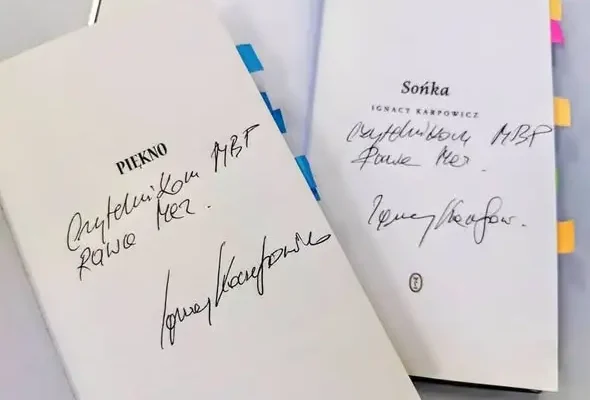 PIĘKNO
Czytelnikom MBP
Rawa Maz.
Ignacy Karpowicz
Sońka
IGNACY KARPOWICZ
Czytelnikom MBP
Rawa Maz.
Ignacy Karpow.